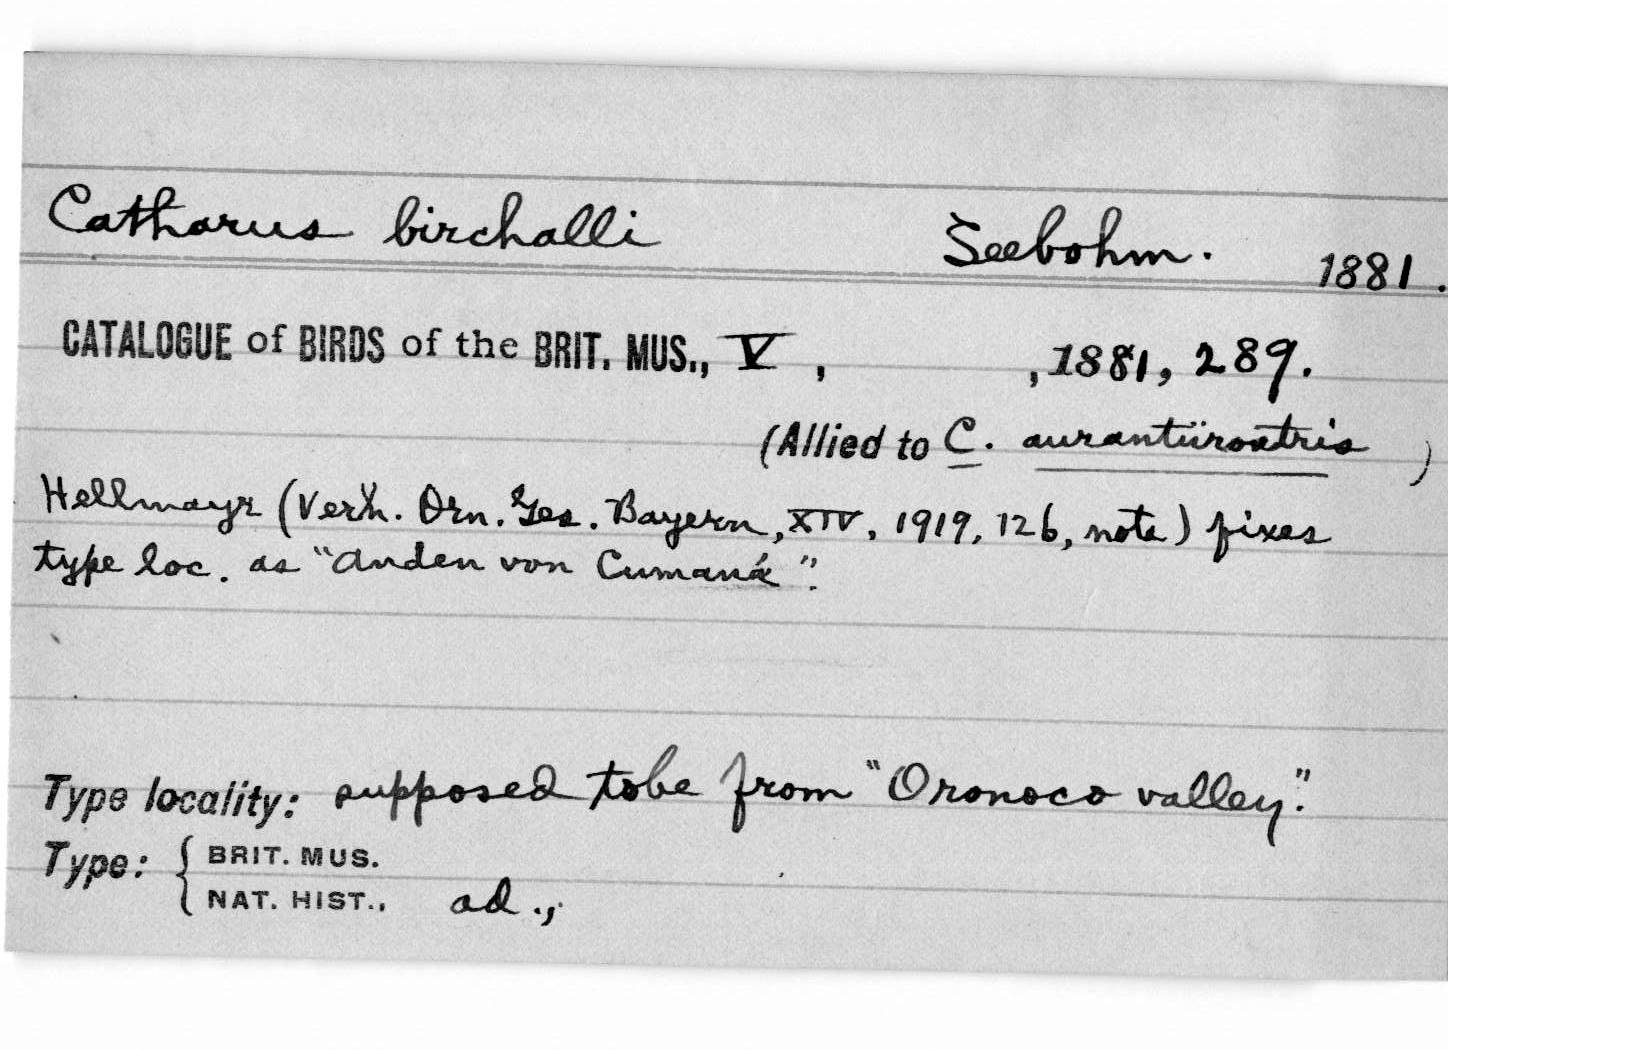 Catharus birchalli Seebohm. 1881.
CATALOGUE of BIRDS of the BRIT. MUS., V, , 1881, 289.
(Allied to C. aurantiirostris )
Hellmayr (Verh. Orn. Ges. Bayern, XIV, 1919, 126, note) fixes
type loc. as "Anden von Cumaná".
Type locality: supposed to be from "Oronoco valley".
Type: { BRIT. MUS.
NAT. HIST., ad.,